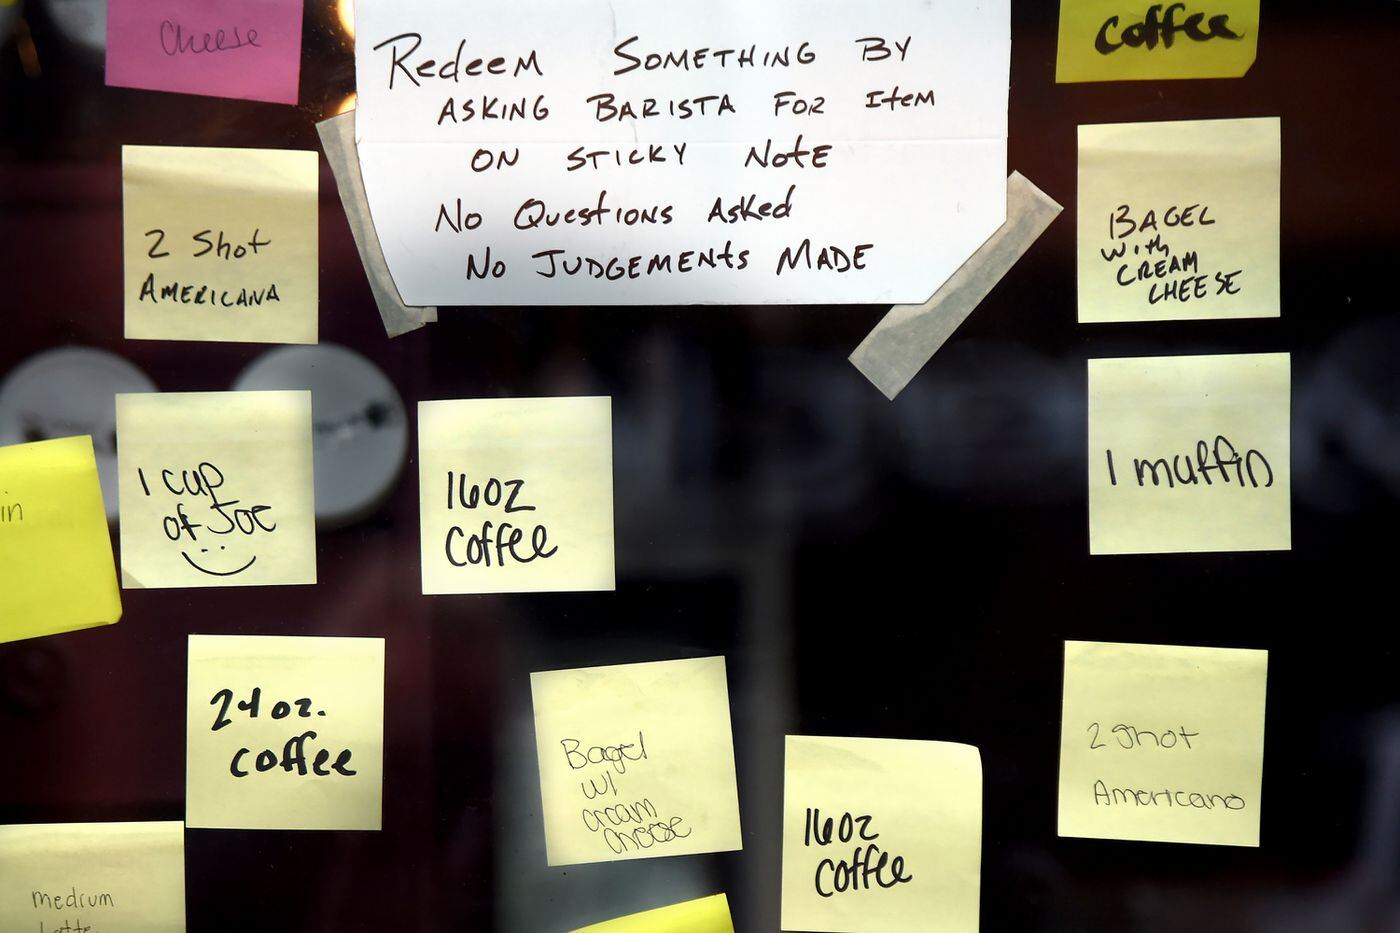 Cheese
Redeem Something By
Asking Barista For Item
on sticky Note
No Questions Asked
No Judgements Made
coffee
2 Shot
Americana
Bagel
with
cream
cheese
1 cup
of Joe
16oz
coffee
1 muffin
in
24 oz.
coffee
Bagel
w/
cream
cheese
16oz
coffee
2 shot
Americano
medium
latte